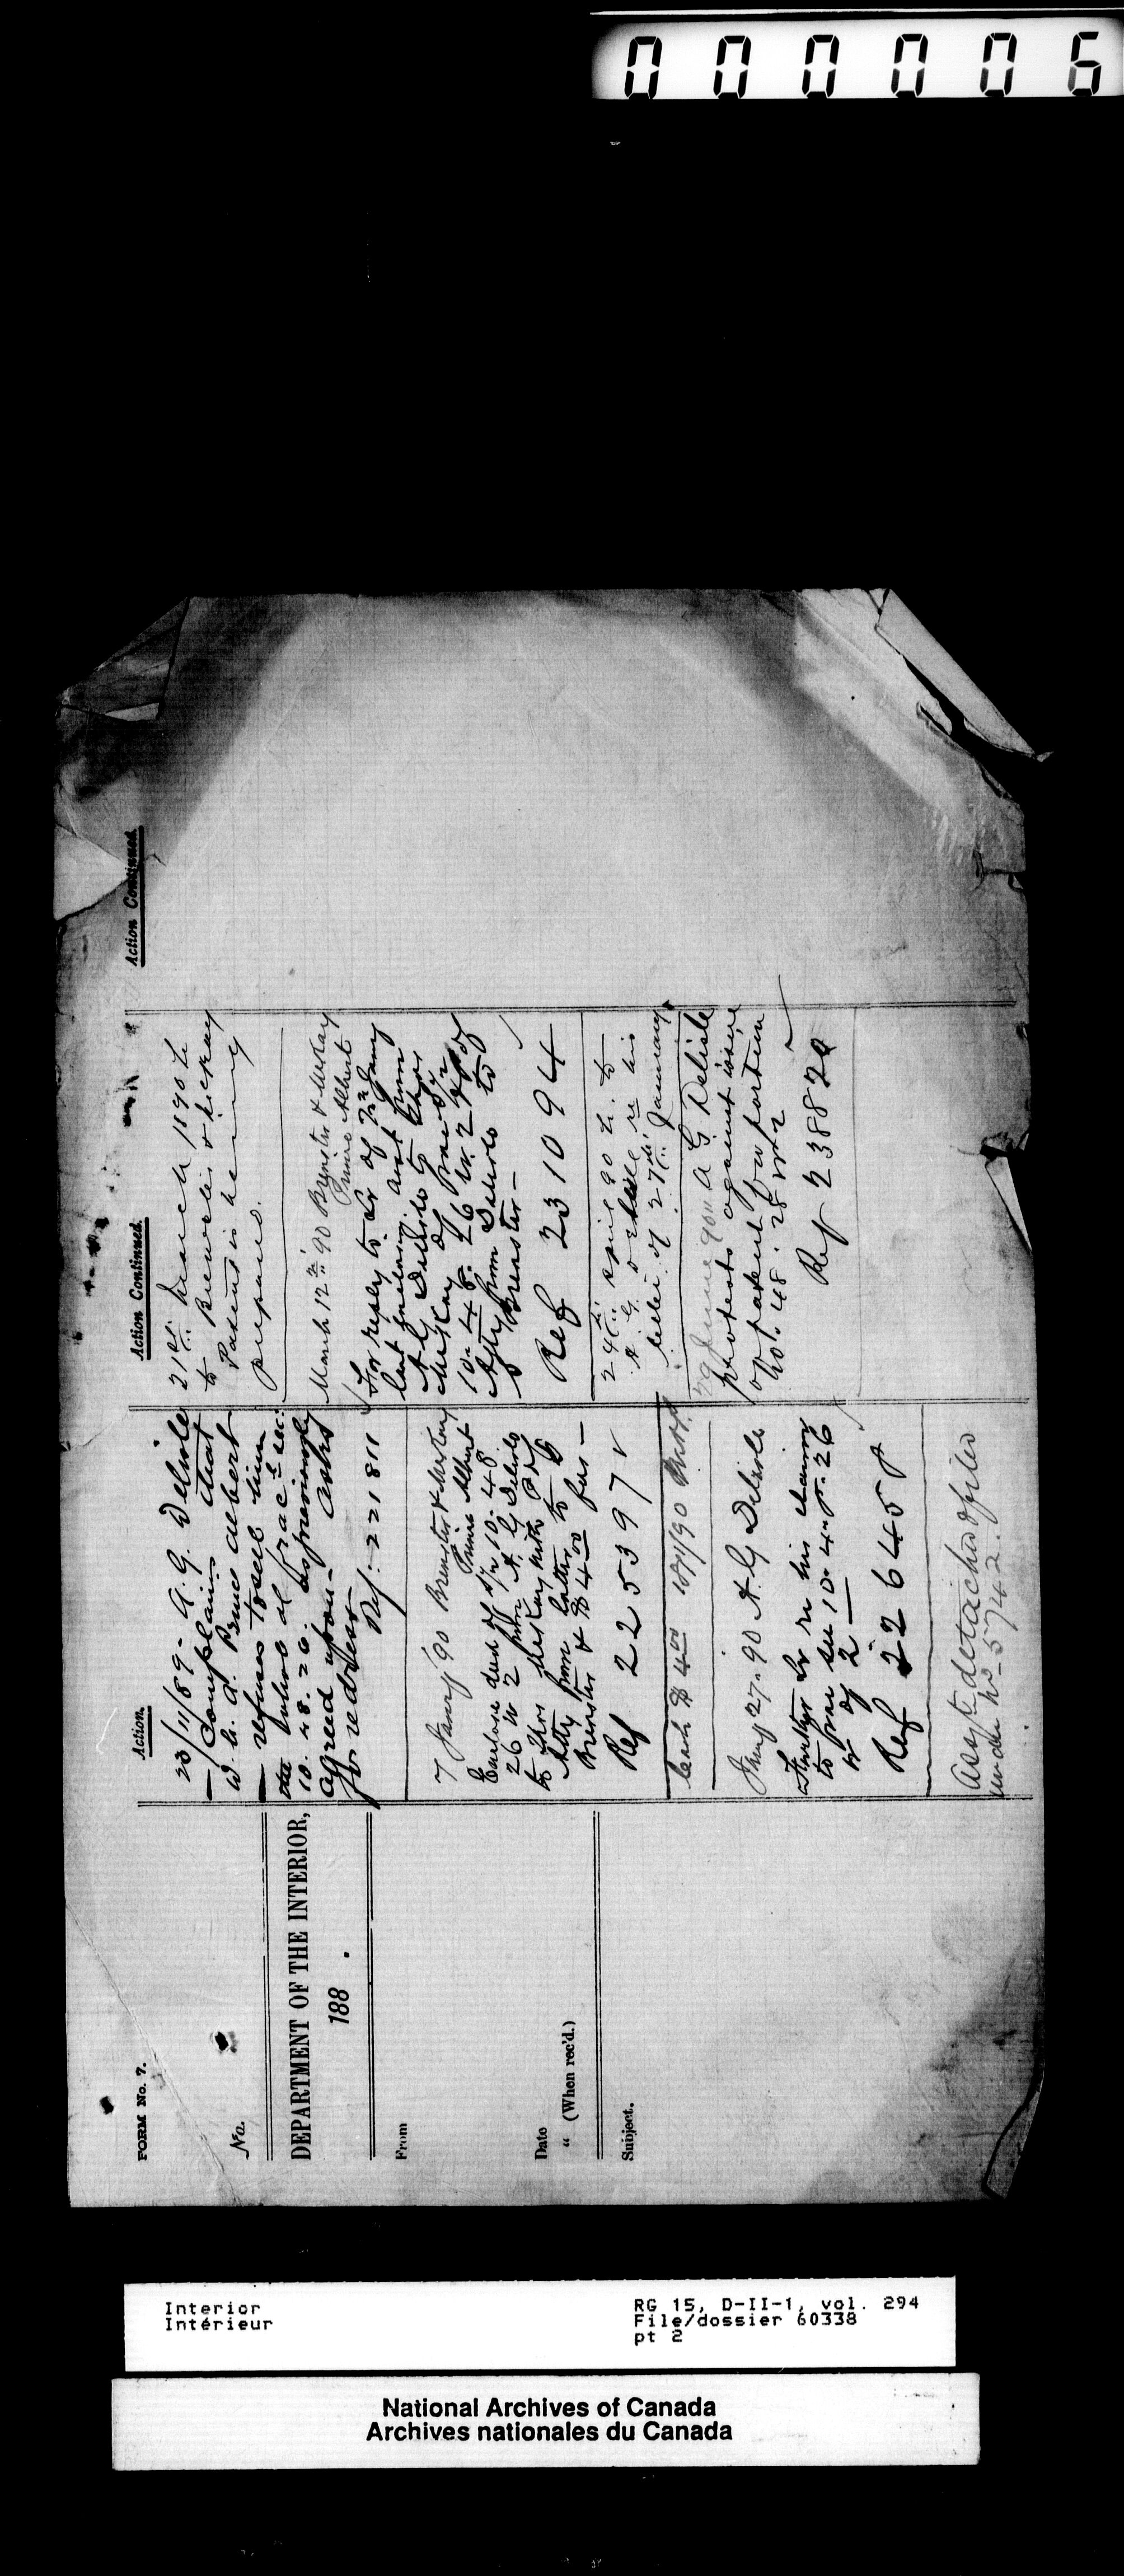 000006
FORM No. 7.
No.
DEPARTMENT OF THE INTERIOR,
188 .
From
Date
" (When rec'd.)
Subject.
Action.
23/11/89 - A. G. Delisle
Complains that
W. A. Prince Albert
refuses to sell him
the
10. 48. 26.
agreed upon - Asks
for redress
Ref: 221811
7 Jany '90 Brewster & McKay
Prince Albert
Enclose deed of 10. 48
26 W 2 from A. G. Delisle
to Thos McKay with
from latter to
Brewster & $4.00 fees -
Ref 225397
$4.00 90
Jany 27. 90 A. G Delisle
Further Lr re his claim
to frac sec 10. 4 26
W of 2
Ref 226645
Assgt detached & filed
under No 5742.
Action Continued.
21st March 1890 Lr
to Brewster & McKay
Patent is being
prepared.
March 12th 90 Brewster & McKay
Prince Albert
For reply to Lr of 7th Jany
last from
A G Delisle to Thos
McKay of frac
10. 48. 26 W. 2
from Delisle to
Brewster -
Ref 231094
24th April 90 Lr. to
A. G. Delisle re his
letter of 27th January
June 90 A G Delisle
protests against issue
of patent for portion
10. 48. 26 W 2
Ref 238820
Action Continued.
Interior
Intérieur
RG 15, D-II-1, vol. 294
File/dossier 60338
pt 2
National Archives of Canada
Archives nationales du Canada